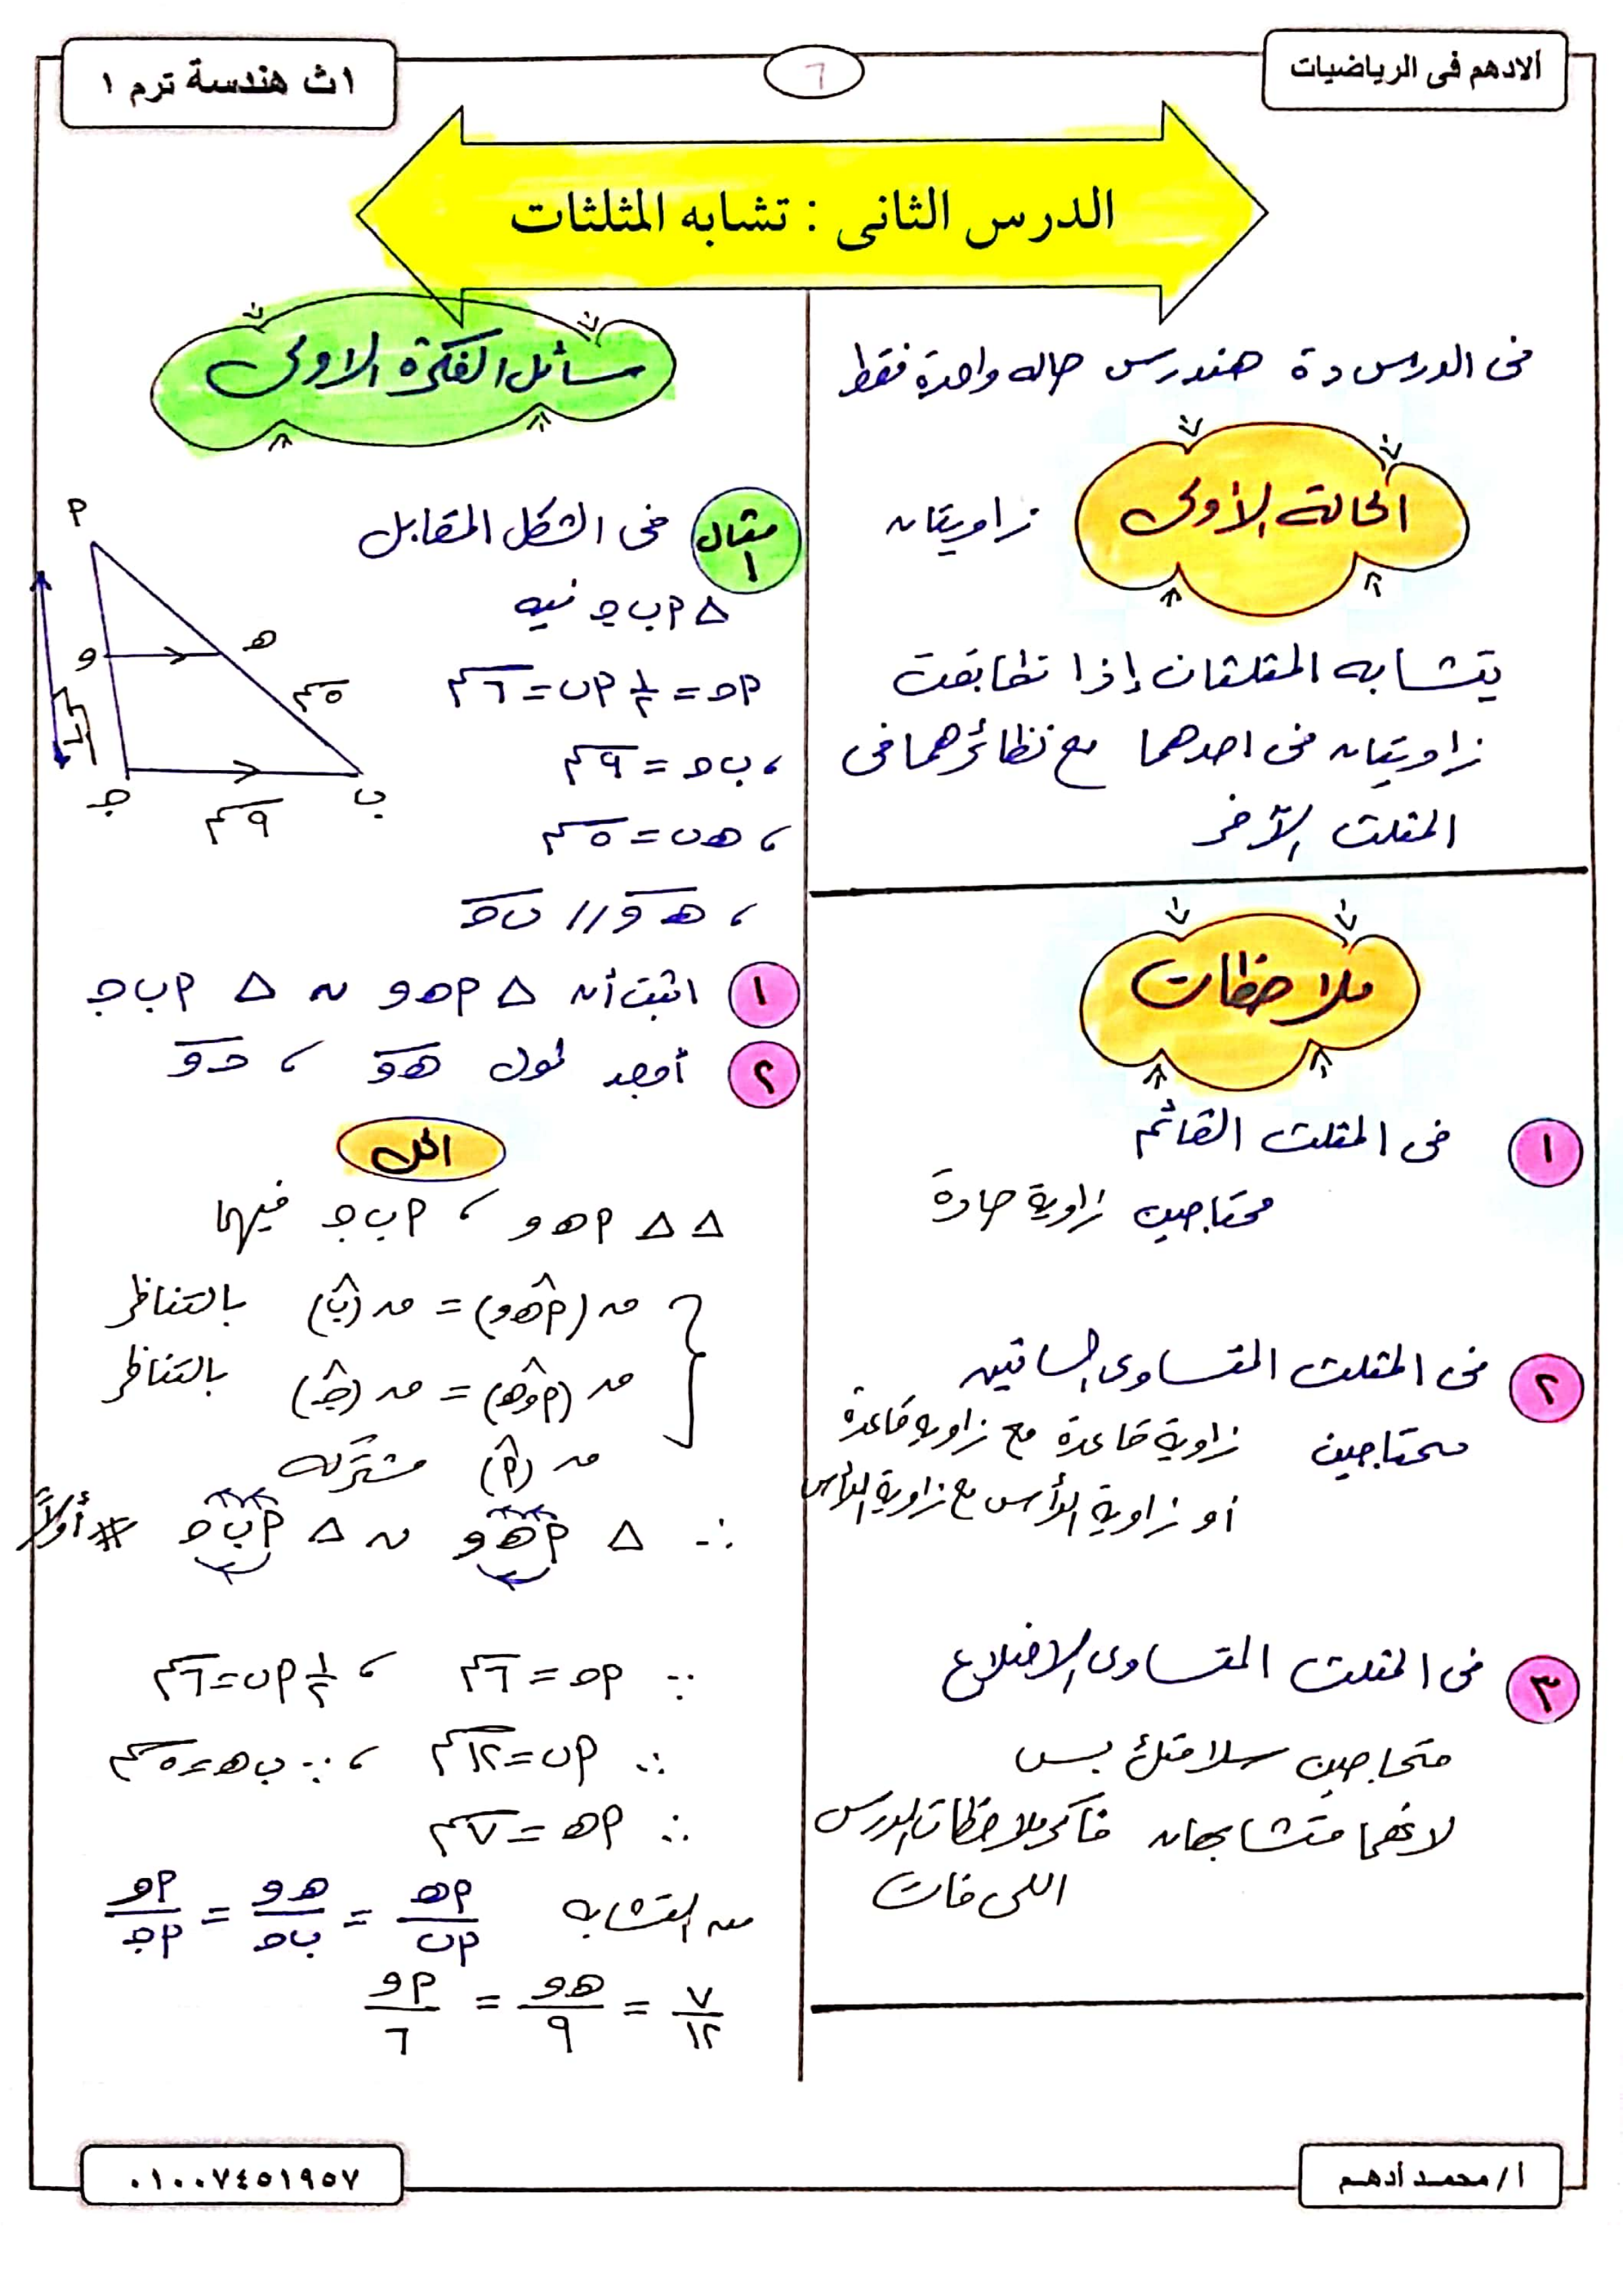 ألادهم فى الرياضيات
٦
١ث هندسة ترم ١
الدرس الثانى : تشابه المثلثات
فى الدرس دة هندرس حاله واحدة فقط
الحالة الأولى
زاويتان
يتشابه المثلثان إذا تطابقت
زاويتان فى احدهما مع نظائرهما فى
المثلث الآخر
ملاحظات
١ فى المثلث القائم
محتاجين زاوية حادة
٢ فى المثلث المتساوى الساقين
محتاجين زاوية قاعدة مع زاوية قاعدة
أو زاوية الرأس مع زاوية الرأس
٣ فى المثلث المتساوى الاضلاع
محتاجين سلامتك بس
لانهما متشابهان فاكر ملاحظات الدرس
اللى فات
مسائل الفكرة الاولى
مثال ١ فى الشكل المقابل
△ م ب جـ فيه
م جـ = ١/٢ م ب = ٦سم
، ب جـ = ٩سم
، هـ ب = ٥سم
، هـ و // ب جـ
م
هـ
و
٥سم
٦سم
جـ
ب
٩سم
١ اثبت أن △ م هـ و ~ △ م ب جـ
٢ أوجد طول هـ و ، جـ و
الحل
△ △ م هـ و ، م ب جـ فيهما
ق (م هـ و) = ق (ب) بالتناظر
ق (م و هـ) = ق (جـ) بالتناظر
ق (م) مشتركة
∴ △ م هـ و ~ △ م ب جـ # أولاً
∵ م جـ = ٦سم ، ١/٢ م ب = ٦سم
∴ م ب = ١٢سم ، ∵ ب هـ = ٥سم
∴ م هـ = ٧سم
من التشابه م هـ / م ب = هـ و / ب جـ = م و / م جـ
٧/١٢ = هـ و / ٩ = م و / ٦
أ / محمد أدهم
٠١٠٠٧٤٥١٩٥٧